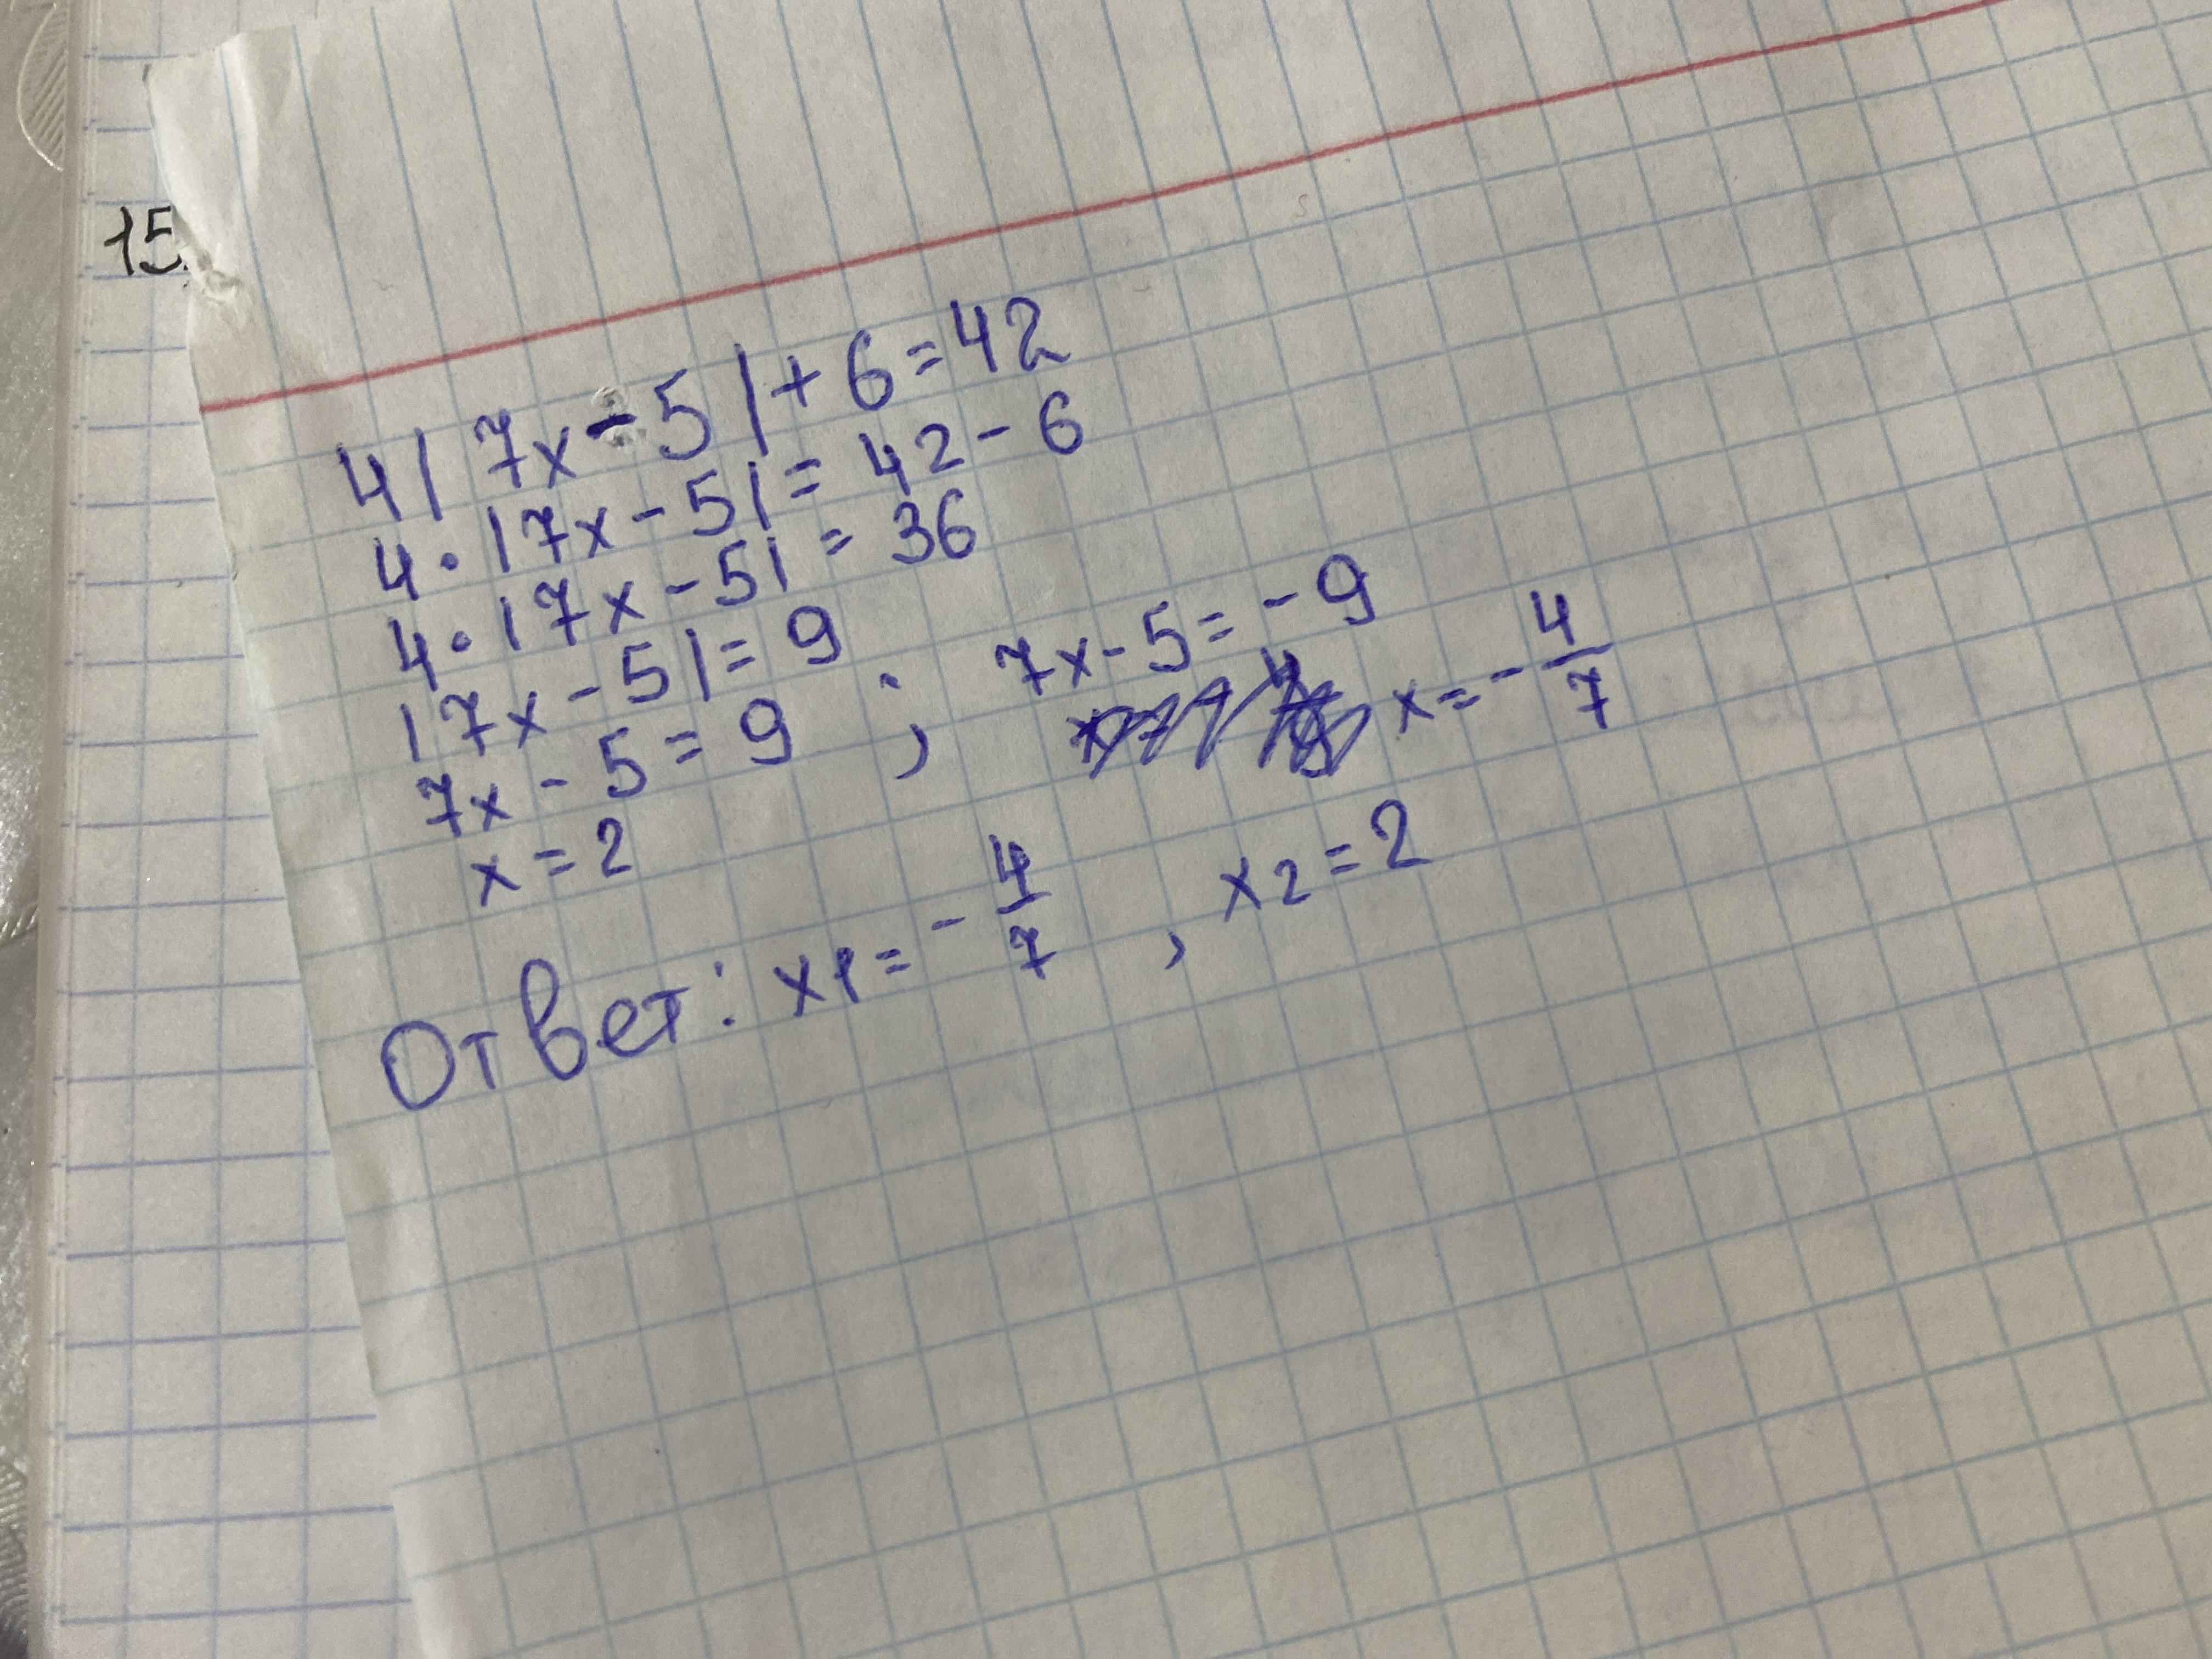 15.
4|7x-5|+6=42
4·|7x-5|=42-6
4·|7x-5|=36
|7x-5|=9
7x-5=9 ; 7x-5=-9
x=2 x=-4/7
Ответ: x1=-4/7, x2=2